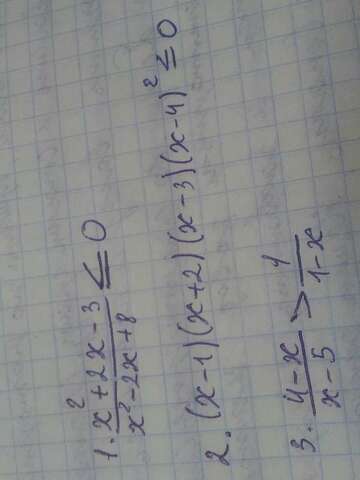 1. x²+2x-3/x²-2x+8 ≤ 0
2. (x-1)(x+2)(x-3)(x-4)² ≤ 0
3. 4-x/x-5 > 1/1-x